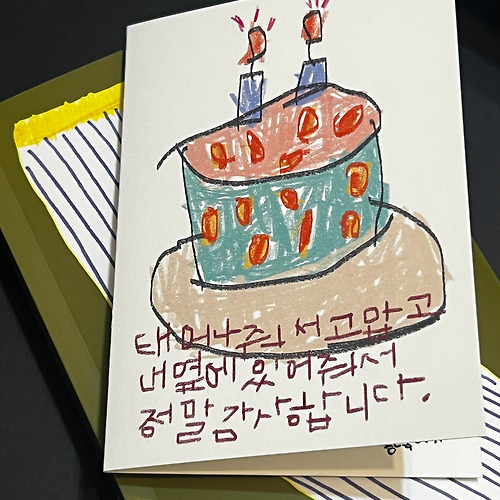 태어나줘서 고맙고
내옆에 있어줘서
정말 감사합니다.